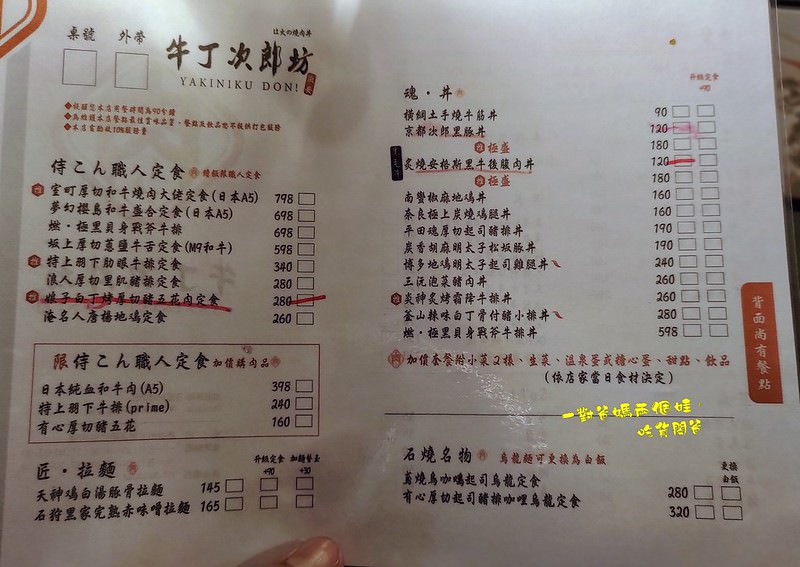 桌號 外帶
は火の燒肉丼
牛丁次郎坊
YAKINIKU DON!
◆提醒您本店用餐時間為90分鐘
◆為維護本店餐點最佳賞味品質、餐點及飲品恕不提供打包服務
◆本店需酌收10%服務費
侍こん職人定食 精緻級職人定食
室町厚切和牛燒肉大佬定食(日本A5) 798
夢幻櫻島和牛盛合定食(日本A5) 698
燃・極黑貝身戰斧牛排 698
坂上厚切蔥鹽牛舌定食(M9和牛) 598
特上羽下肋眼牛排定食 340
浪人厚切里肌豬排定食 280
娘子白丁烤厚切豬五花肉定食 280
淹名人唐揚地鶏定食 260
限侍こん職人定食 加價購肉品
日本純血和牛肉(A5) 398
特上羽下牛排(prime) 240
有心厚切豬五花 160
匠・拉麵
升級定食 +90 加麵替玉 +30
天神鶏白湯豚骨拉麵 145
石狩黑家完熟赤味噌拉麵 165
魂・丼
升級定食 +90
橫綱土手燒牛筋丼 90
京都次郎黑豚丼 120
極盛 180
炙燒安格斯黑牛後腹肉丼 120
極盛 180
南蠻椒麻地鶏丼 160
奈良極上炭燒鶏腿丼 160
平田魂厚切起司豬排丼 190
炭香胡麻明太子松坂豚丼 190
博多地鶏明太子起司雞腿丼 240
三沅泡菜豬肉丼 260
炎神炙烤霜降牛排丼 260
釜山辣味白丁骨付豬小排丼 280
燃・極黑貝身戰斧牛排丼 598
加價套餐附小菜2樣、生菜、溫泉蛋或糖心蛋、甜點、飲品
(依店家當日食材決定)
背面尚有餐點
一對爹媽兩個娃
吃貨閃爹
石燒名物 烏龍麵可更換為白飯
更換白飯
鳶燒烏咖哩起司烏龍定食 280
有心厚切起司豬排咖哩烏龍定食 320